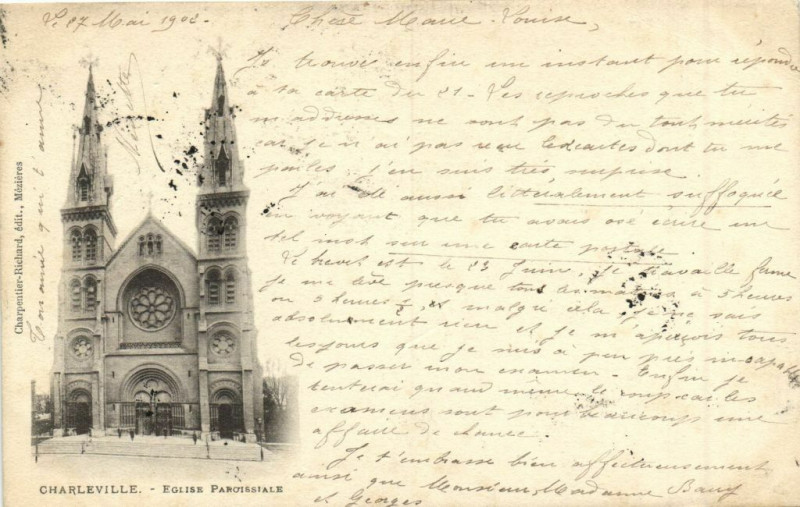 Le 27 Mai 1903. Chère Marie-Louise,
Je trouve enfin un instant pour répondre
à ta carte du 21. Les reproches que tu
m'addresses ne sont pas du tout mérités
car je n'ai pas reçu les cartes dont tu me
parles. J'en suis très surprise.
J'ai été aussi littéralement suffoquée
en voyant que tu avais osé écrire un
tel mot sur une carte postale.
Le brevet est le 23 Juin, je travaille ferme
je me lève presque tous les matins à 5 heures
ou 5 heures ½, et malgré cela je ne sais
absolument rien et je m'aperçois tous
les jours que je suis à peu près incapable
de passer mon examen. Enfin je
tenterai quand même le coup car les
examens sont pour beaucoup une
affaire de chance.
Je t'embrasse bien affectueusement
ainsi que Monsieur, Madame
et Georges
Ton amie qui t'aime
Charpentier-Richard, édit., Mézières
CHARLEVILLE. - EGLISE PAROISSIALE